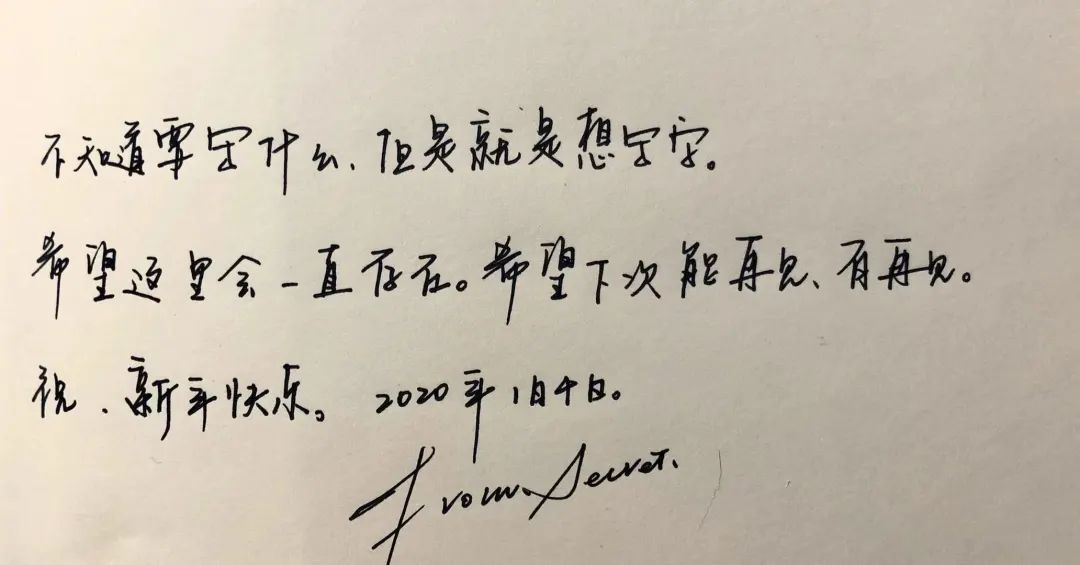 不知道要写什么、但是就是想写字。
希望这里会一直存在。希望下次能再见、有再见。
祝、新年快乐。 2020年1月4日。
From. Secret.